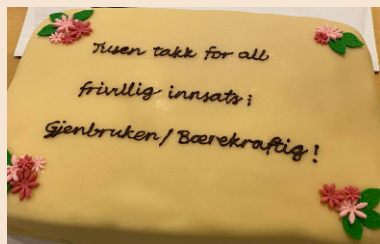 Tusen takk for all
frivillig innsats i
Gjenbruken/Bærekraftig!